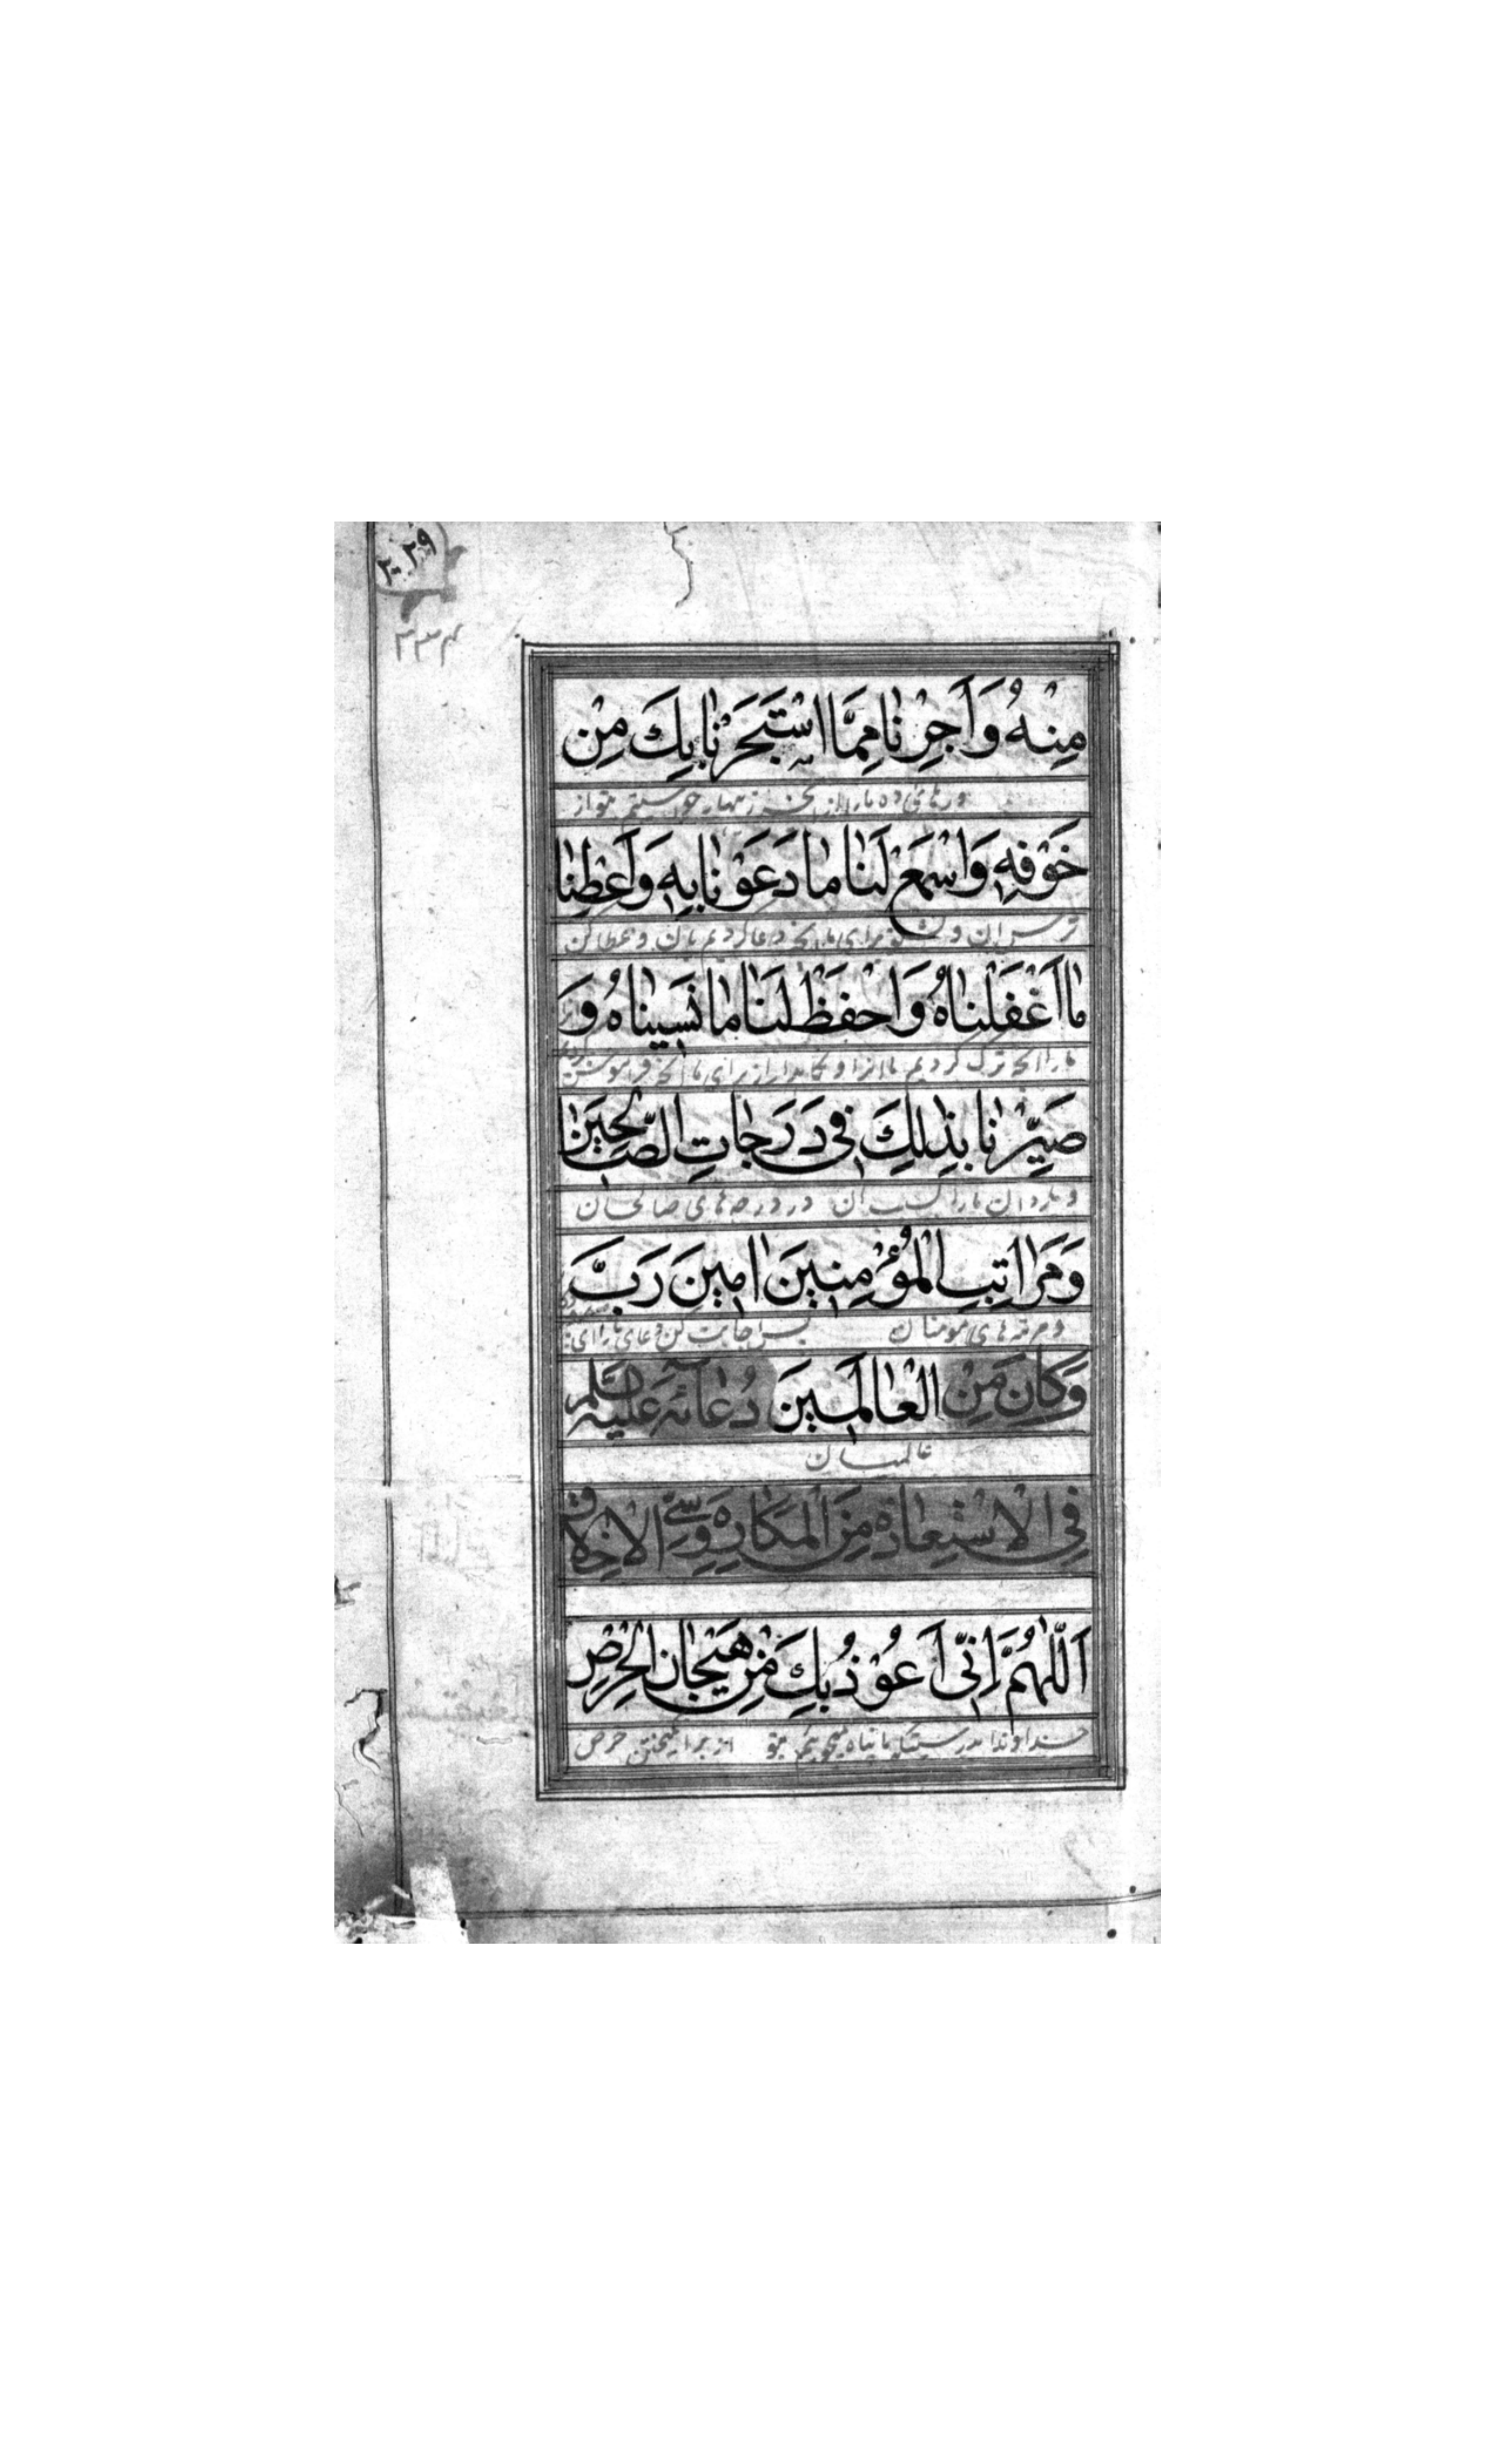 ۲۰۲۹
۳۳۴
مِنْهُ وَاَجِرْنا مِمَّا اسْتَجَرْنا بِكَ مِنْ
ورهائی ده ما را از آنچه زنهار خواستیم بتو از
خَوْفِهِ وَاسْمَعْ لَنا ما دَعَوْنا بِهِ وَاَعْطِنا
ترس آن و بشنو برای ما آنچه دعا کردیم بآن و عطا کن
ما اَغْفَلْناهُ وَاحْفَظْ لَنا ما نَسِيناهُ وَ
ما را آنچه ترک کردیم ما آنرا و نگاهدار از برای ما آنچه فراموش کردیم
صَيِّرْنا بِذٰلِكَ فِي دَرَجاتِ الصّالِحِينَ
و بگردان ما را بسبب آن در درجه‌های صالحان
وَمَراتِبِ الْمُؤْمِنِينَ امِينَ رَبَّ
و مرتبه‌های مومنان پس اجابت کن دعای ما را ای
وَكانَ مِنْ الْعالَمِينَ دُعائِهِ عَلَيْهِ السَّلام
عالمیان
فِي الْاِسْتِعاذَةِ مِنَ الْمَكارِهِ وَسَيِّئِ الْاَخْلاقِ
اَللّٰهُمَّ اِنِّي اَعُوْذُ بِكَ مِنْ هَيَجانِ الْحِرْصِ
خداوندا بدرستیکه ما پناه میجوئیم بتو از برانگیختن حرص